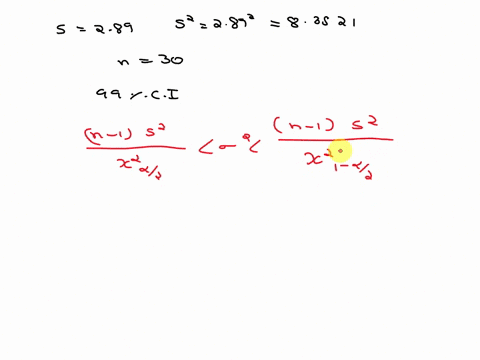 s = 2.89 s² = 2.89² = 8.3521
n = 30
99 %. C.I
(n-1) s² / x²α/2 < σ² < (n-1) s² / x²1-α/2